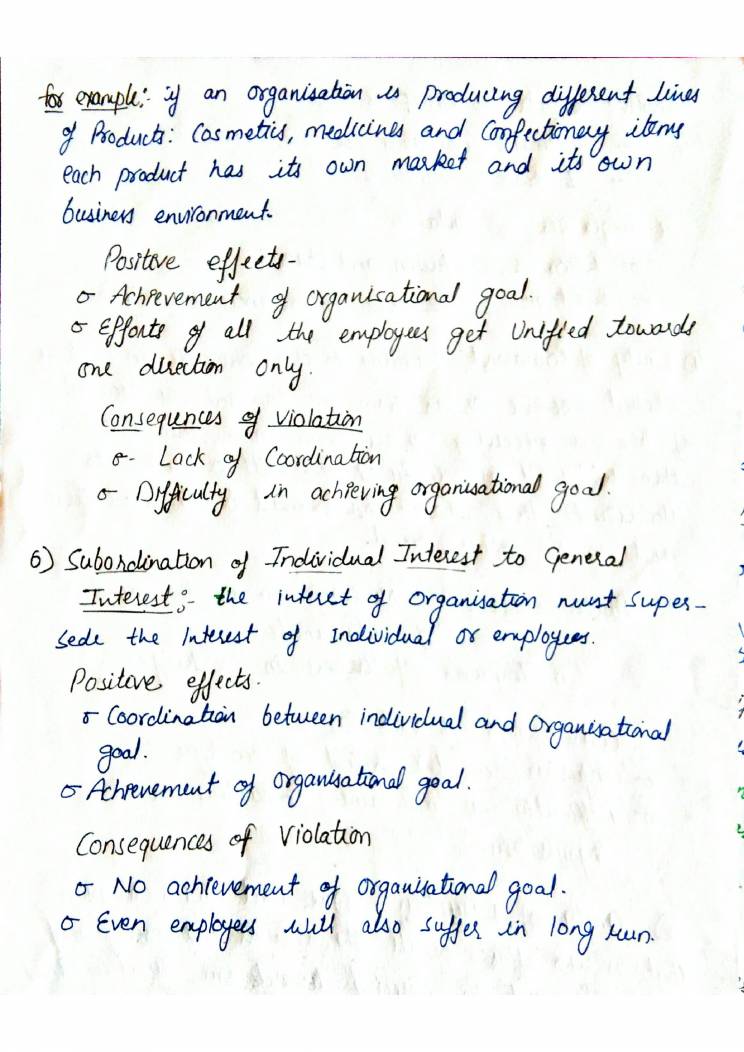 for example:- if an organisation is producing different lines
of Products: Cosmetics, medicines and Confectionery items
each product has its own market and its own
business environment.
Positive effects-
Achievement of organisational goal.
Efforts of all the employees get Unified towards
one direction only.
Consequnces of violation
- Lack of Coordination
Difficulty in achieving organisational goal.
6) Subordination of Individual Interest to General
Interest:- the interet of organisation must super-
sede the Interest of Individual or employees.
Positive effects.
Coordination between individual and Organisational
goal.
Achievement of organisational goal.
Consequences of Violation
No achievement of organisational goal.
Even employees will also suffer in long run.